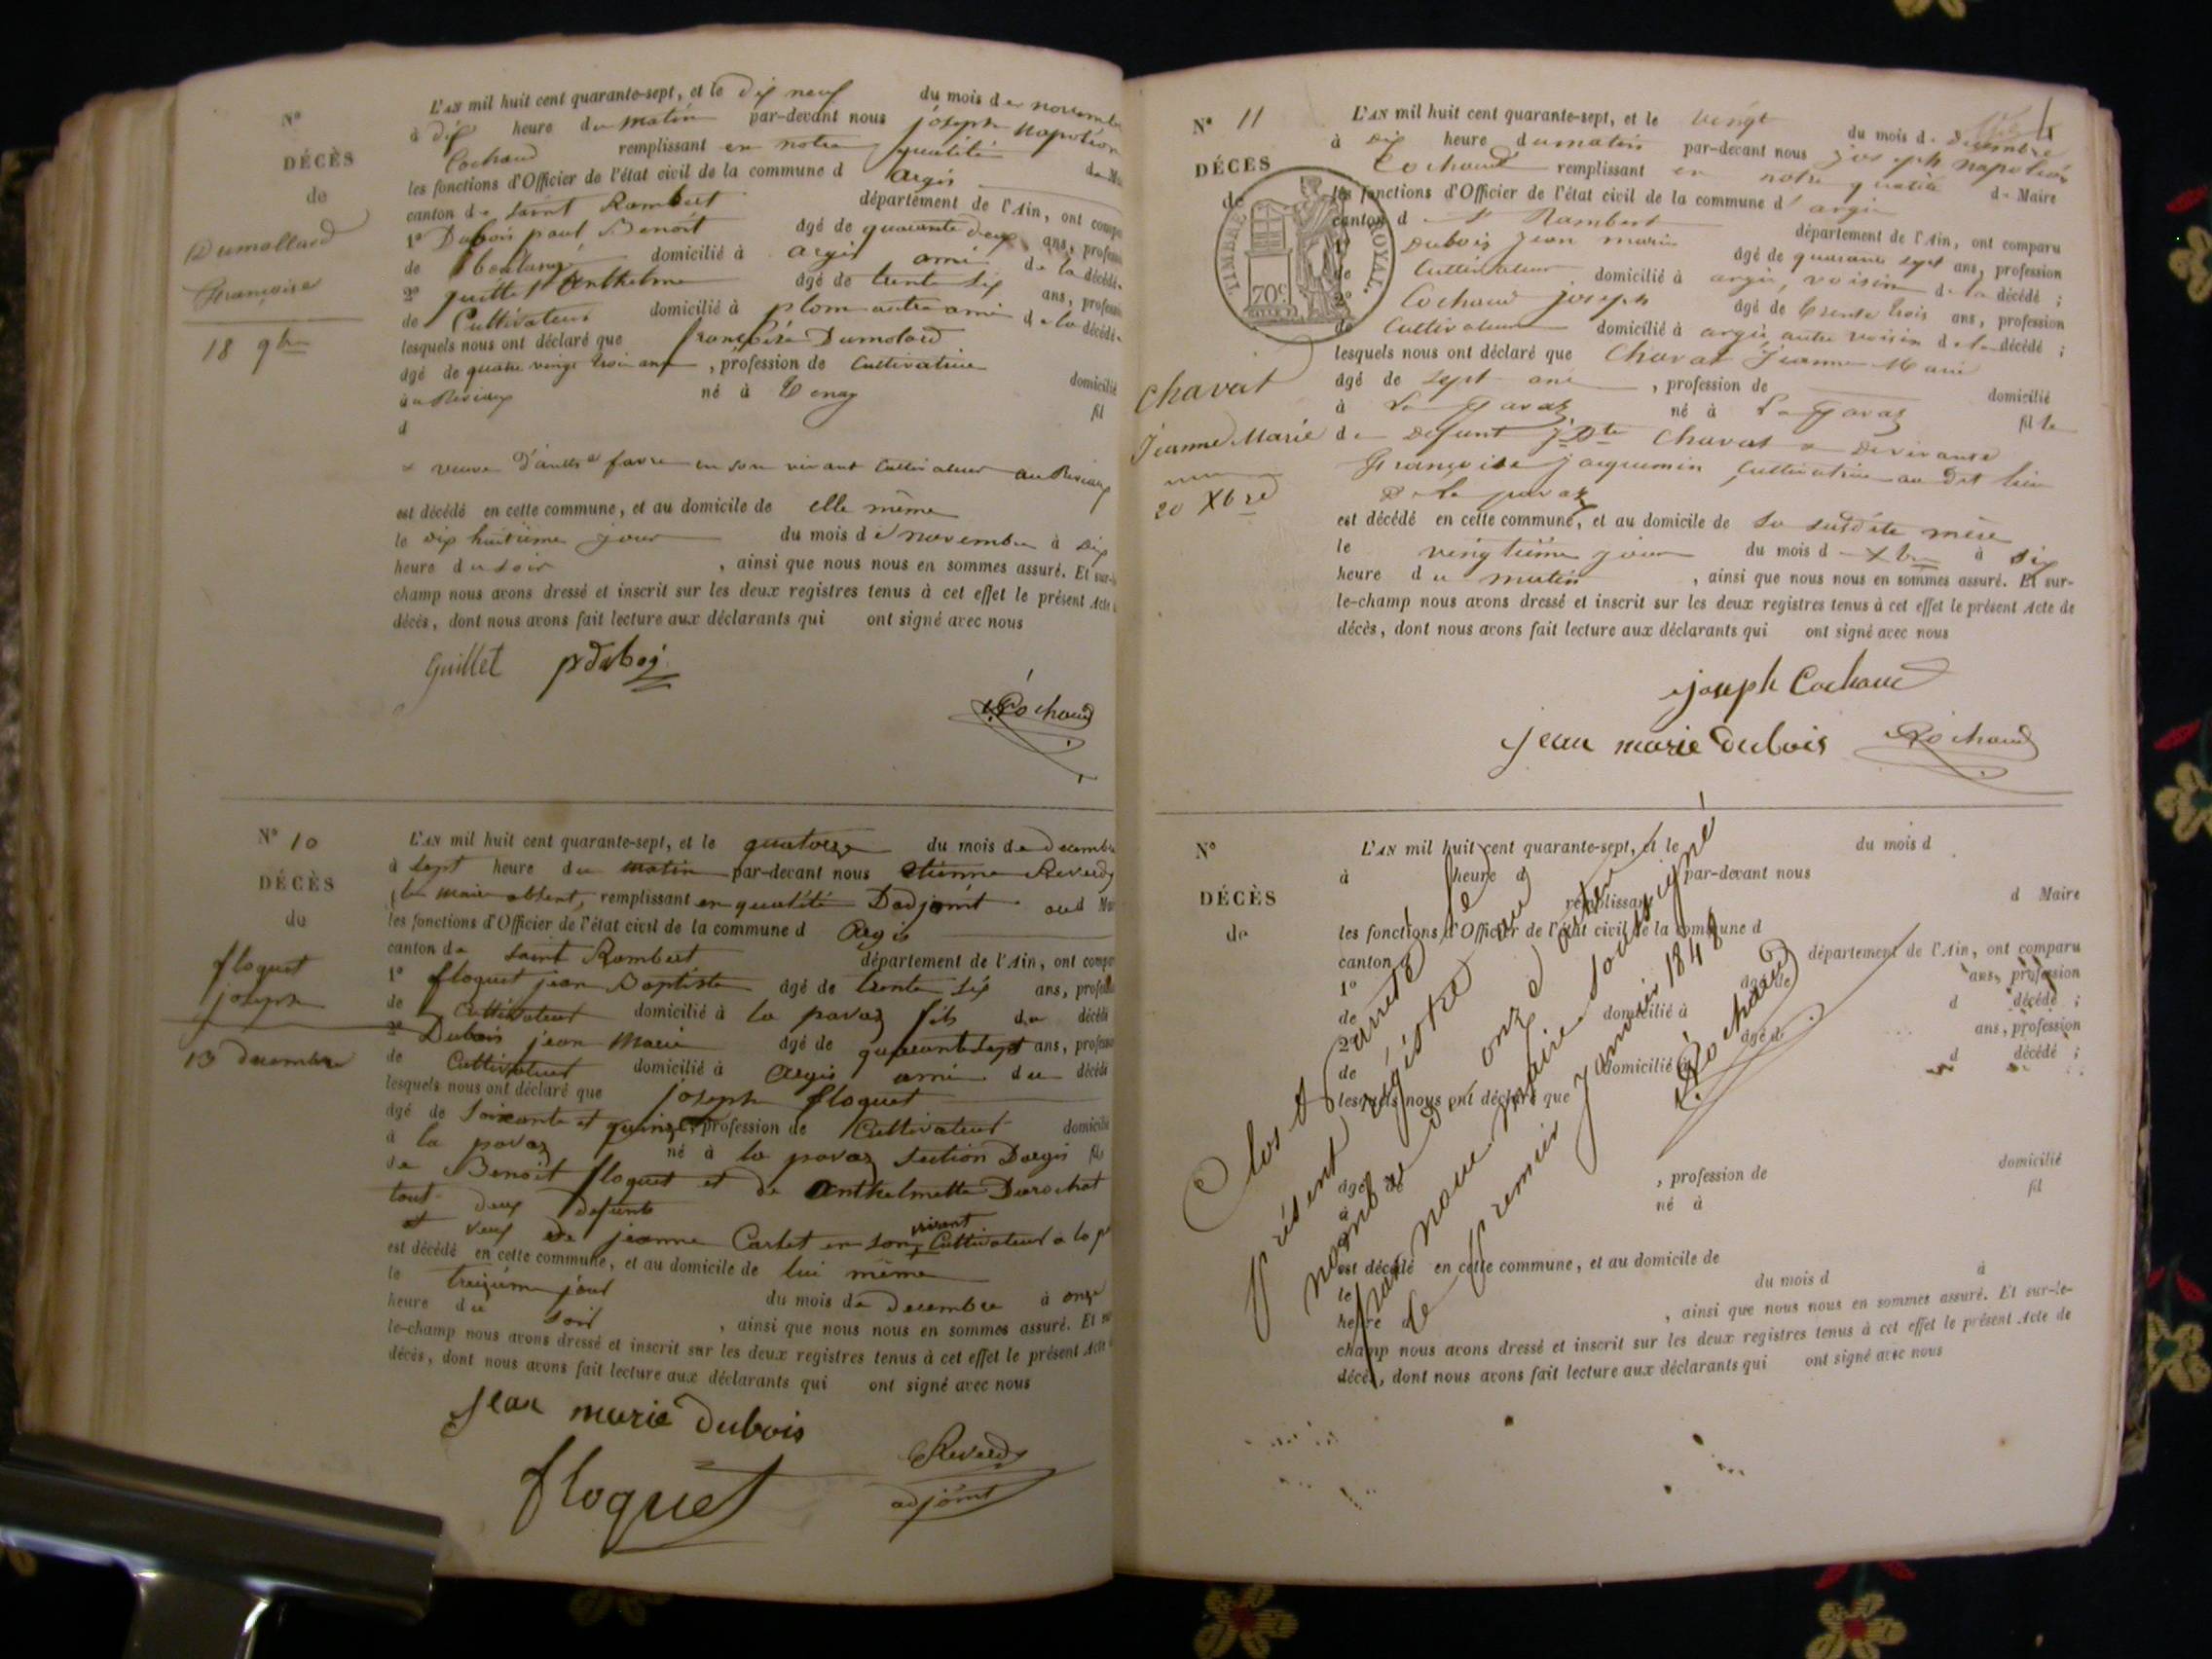 N°
DÉCÈS
de
Dumollard
Françoise
18 9bre
L'AN mil huit cent quarante-sept, et le dix neuf du mois de novembre
à dix heure du matin par-devant nous joseph Napoléon
Cochand remplissant en notre qualité de Ma
les fonctions d'Officier de l'état civil de la commune d Argis
canton de Saint Rambert département de l'Ain, ont compa
1° Dubois paul Benoit âgé de quarante deux ans, profession
de boulanger domicilié à argis ami de la décédée
2° guillet Anthelme âgé de trente six ans, profession
de Cultivateur domicilié à plom autre ami de la décédée
lesquels nous ont déclaré que françoise Dumolard
âgé de quatre vingt trois ans, profession de Cultivatrice domicilié
né à Tenay fil
d
veuve d'André favre en son vivant Cultivateur
est décédé en cette commune, et au domicile de elle même
le dix huitième jour du mois de novembre à dix
heure du soir, ainsi que nous nous en sommes assuré. Et sur-le
champ nous avons dressé et inscrit sur les deux registres tenus à cet effet le présent Acte
décès, dont nous avons fait lecture aux déclarants qui ont signé avec nous
guillet pduboi
Cochand
N° 10
DÉCÈS
de
floquet
joseph
13 decembre
L'AN mil huit cent quarante-sept, et le quatorze du mois de decembre
à sept heure du matin par-devant nous etienne Reverdy
le maire absent, remplissant en qualité Dadjoint au d Ma
les fonctions d'Officier de l'état civil de la commune d Argis
canton de Saint Rambert département de l'Ain, ont compa
1° floquet jean Baptiste âgé de trente six ans, profession
de Cultivateur domicilié à la pavaz fils du décédé
2° Dubois jean Marie âgé de quarante sept ans, profession
de Cultivateur domicilié à Argis ami du décédé
lesquels nous ont déclaré que joseph floquet
âgé de soixante et quinze, profession de Cultivateur domicilié
à la pavaz né à la pavaz section Dargis fils
de Benoit floquet et de Anthelmette Durochat
tout deux defunts
et veuf de jeanne Carlet en son vivant Cultivateur a la p
est décédé en cette commune, et au domicile de lui même
le treizième jour du mois de decembre à onze
heure du soir, ainsi que nous nous en sommes assuré. Et sur
le-champ nous avons dressé et inscrit sur les deux registres tenus à cet effet le présent Acte
décès, dont nous avons fait lecture aux déclarants qui ont signé avec nous
jean marie Dubois
floquet
Reverdy
adjoint
N° 11
DÉCÈS
de
TIMBRE ROYAL.
70c
Chavat
Jeanne Marie
20 Xbre
L'AN mil huit cent quarante-sept, et le vingt du mois de decembre
à dix heure du matin par-devant nous joseph napoléon
Cochand remplissant en notre qualité de Maire
les fonctions d'Officier de l'état civil de la commune d'argis
canton d St Rambert département de l'Ain, ont comparu
1° Dubois Jean marie âgé de quarante sept ans, profession
de Cultivateur domicilié à argis, voisin de la décédé ;
2° Cochand joseph âgé de trente trois ans, profession
de Cultivateur domicilié à argis autre voisin de la décédé ;
lesquels nous ont déclaré que Chavat Jeanne Marie
âgé de sept ans, profession de domicilié
à La Pavaz né à La Pavaz fille
de Defunt J Bte Chavat & De vivante
Françoise jacquemin Cultivatrice au dit lieu
De la pavaz
est décédé en cette commune, et au domicile de Sa susdite mère
le vingtième jour du mois d Xbre à six
heure du matin, ainsi que nous nous en sommes assuré. Et sur-
le-champ nous avons dressé et inscrit sur les deux registres tenus à cet effet le présent Acte de
décès, dont nous avons fait lecture aux déclarants qui ont signé avec nous
joseph Cochand
jean marie Dubois Cochand
N°
DÉCÈS
de
L'AN mil huit cent quarante-sept, et le du mois d
à heure d par-devant nous
remplissant d Maire
les fonctions d'Officier de l'état civil de la commune d
canton d département de l'Ain, ont comparu
1° âgé de ans, profession
de domicilié à d décédé ;
2° âgé de ans, profession
de domicilié à d décédé ;
lesquels nous ont déclaré que
âgé de , profession de domicilié
à né à fil
d
est décédé en cette commune, et au domicile de
le du mois d à
heure d , ainsi que nous nous en sommes assuré. Et sur-le-
champ nous avons dressé et inscrit sur les deux registres tenus à cet effet le présent Acte de
décès, dont nous avons fait lecture aux déclarants qui ont signé avec nous
Clos et arrêté le
présent régistre au
nombre d onze actes
par nous maire soussigné
le premier Janvier 1848
Cochand